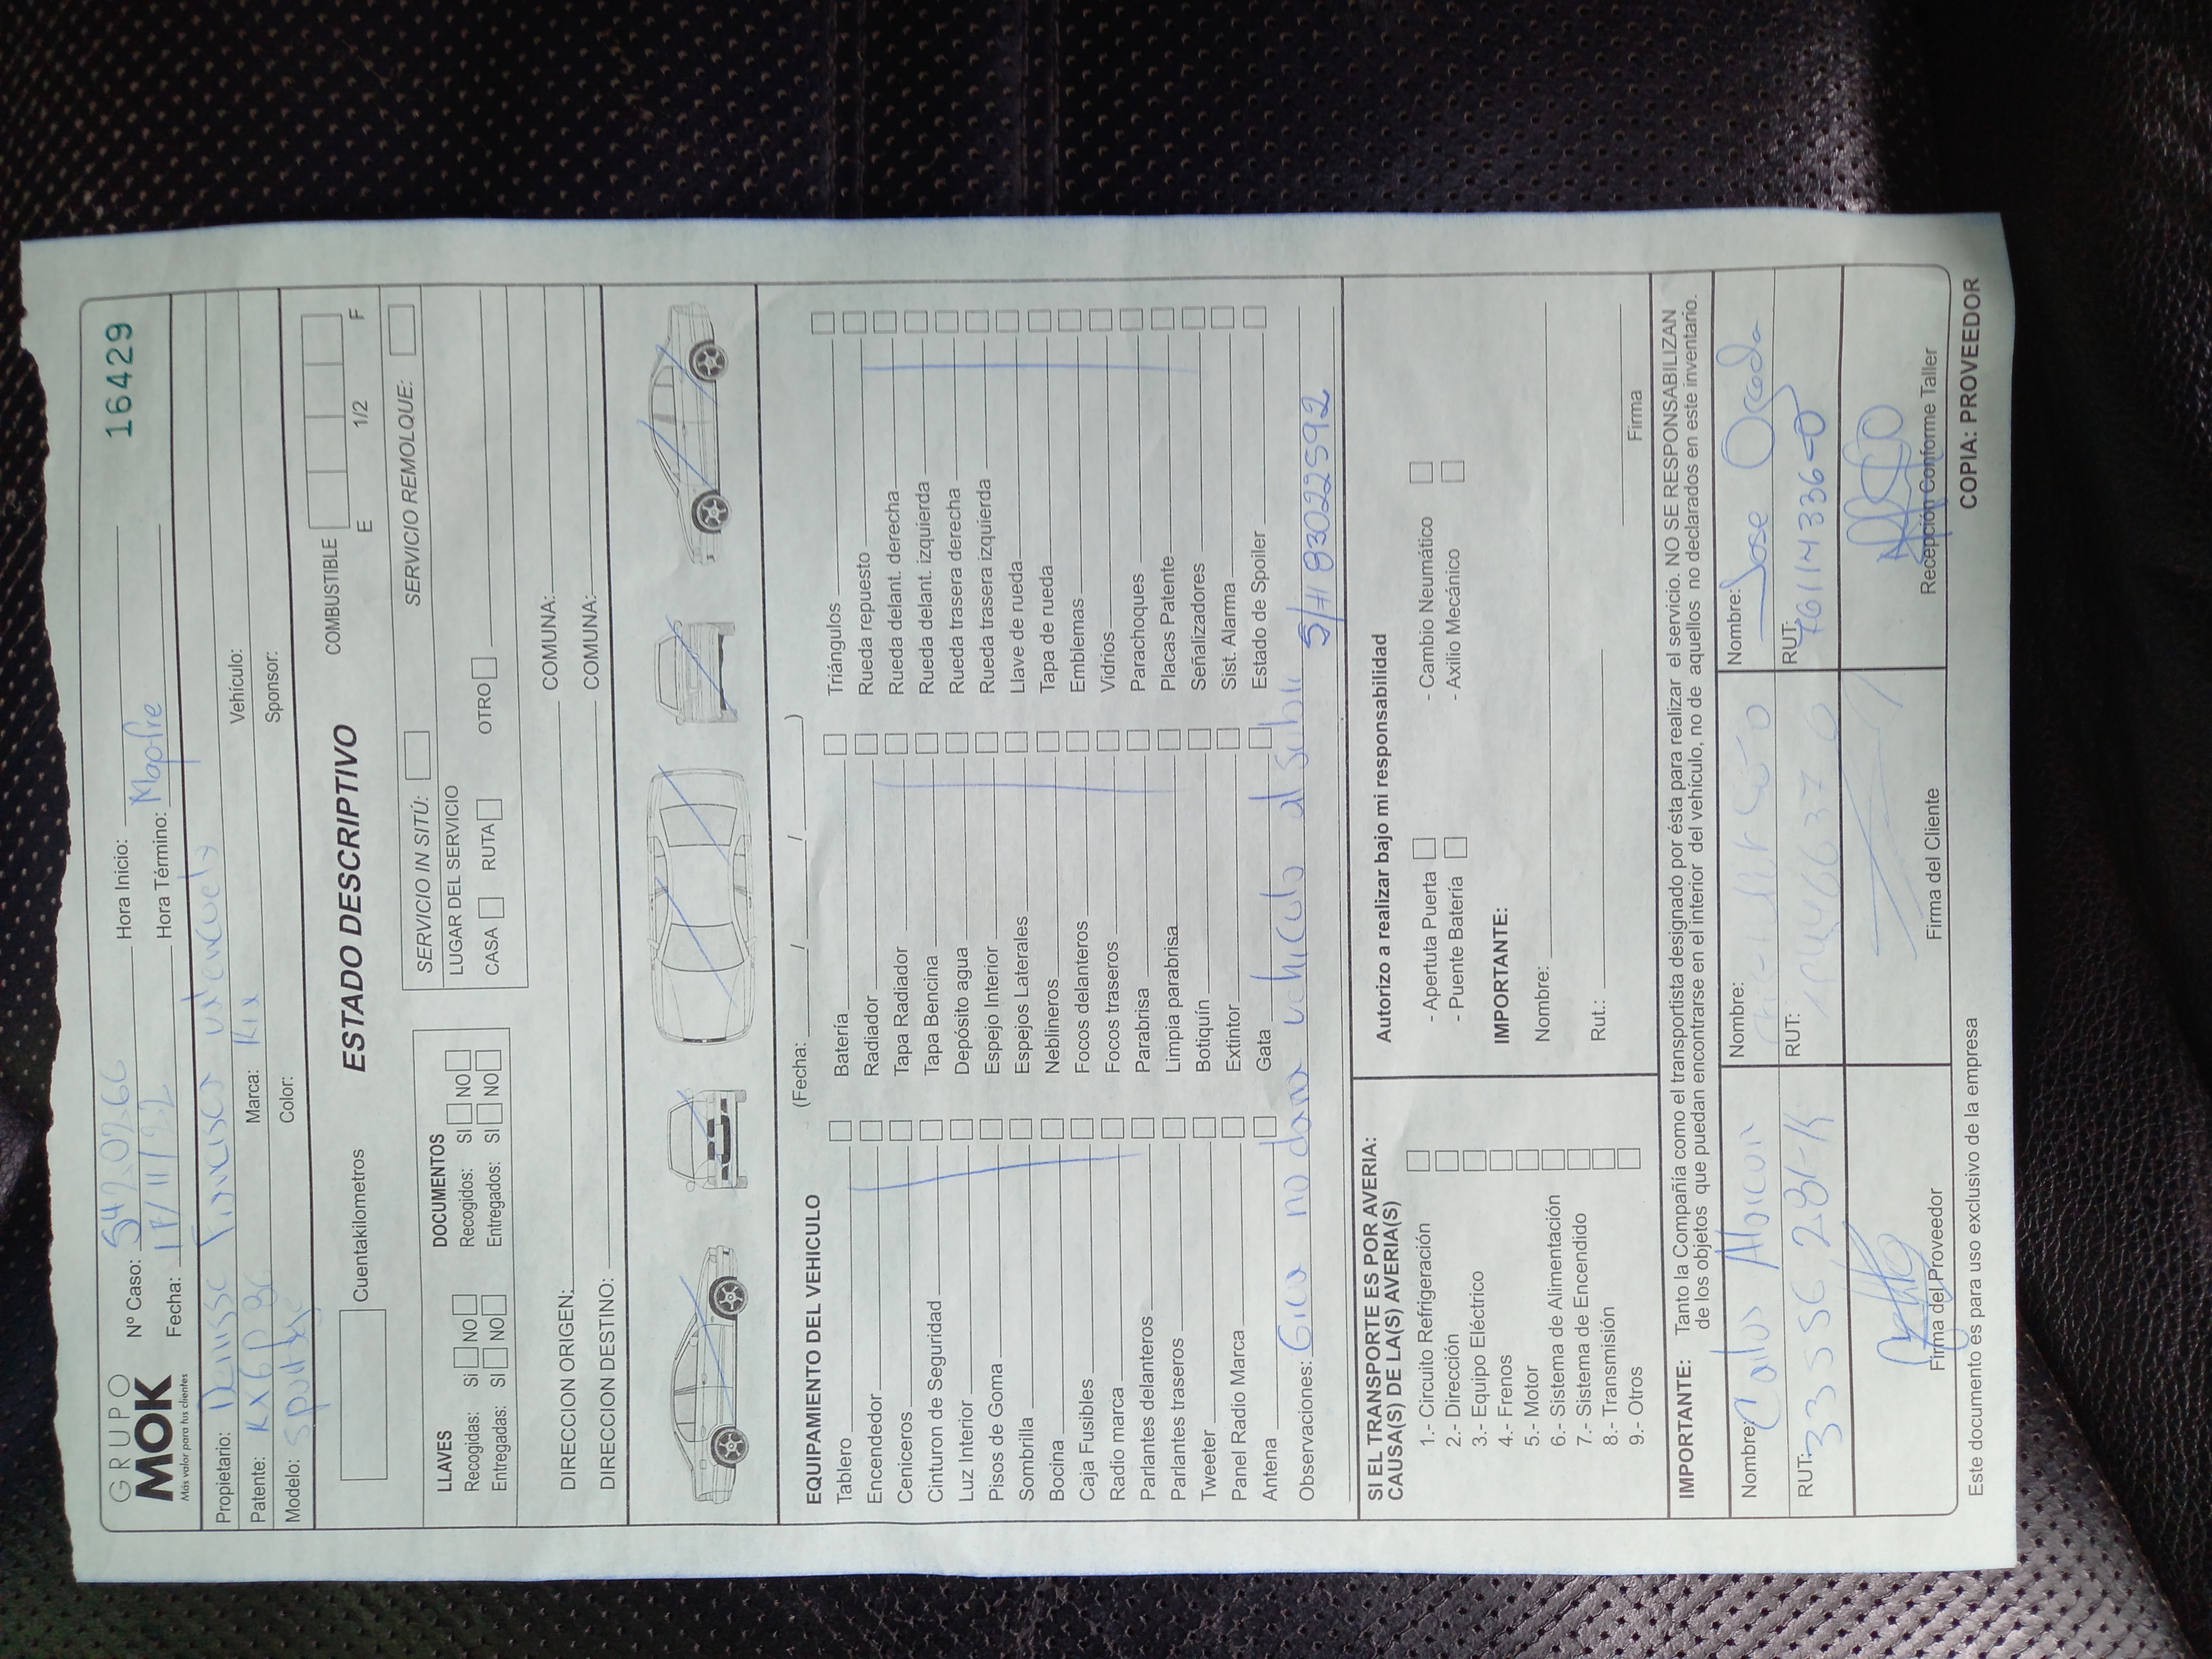 GRUPO
MOK
Más valor para tus clientes
Nº Caso: 5420266 Hora Inicio: 16429
Fecha: 17/11/22 Hora Término: Mapfre
Propietario: Denisse Vehículo:
Patente: Marca: Kia Sponsor:
Modelo: Sportage Color:
Cuentakilometros
ESTADO DESCRIPTIVO
COMBUSTIBLE
E 1/2 F
LLAVES
Recogidas: Si NO
Entregadas: SI NO
DOCUMENTOS
Recogidos: SI NO
Entregados: SI NO
SERVICIO IN SITÚ:
SERVICIO REMOLQUE:
LUGAR DEL SERVICIO
CASA RUTA OTRO
DIRECCION ORIGEN: COMUNA:
DIRECCION DESTINO: COMUNA:
EQUIPAMIENTO DEL VEHICULO (Fecha: / / )
Tablero Batería Triángulos
Encendedor Radiador Rueda repuesto
Ceniceros Tapa Radiador Rueda delant. derecha
Cinturon de Seguridad Tapa Bencina Rueda delant. izquierda
Luz Interior Depósito agua Rueda trasera derecha
Pisos de Goma Espejo Interior Rueda trasera izquierda
Sombrilla Espejos Laterales Llave de rueda
Bocina Neblineros Tapa de rueda
Caja Fusibles Focos delanteros Emblemas
Radio marca Focos traseros Vidrios
Parlantes delanteros Parabrisa Parachoques
Parlantes traseros Limpia parabrisa Placas Patente
Tweeter Botiquín Señalizadores
Panel Radio Marca Extintor Sist. Alarma
Antena Gata Estado de Spoiler
Observaciones: Grua no dana vehiculo al subir
SI EL TRANSPORTE ES POR AVERIA:
CAUSA(S) DE LA(S) AVERIA(S)
1.- Circuito Refrigeración
2.- Dirección
3.- Equipo Eléctrico
4.- Frenos
5.- Motor
6.- Sistema de Alimentación
7.- Sistema de Encendido
8.- Transmisión
9.- Otros
Autorizo a realizar bajo mi responsabilidad
- Apertuta Puerta - Cambio Neumático
- Puente Batería - Axilio Mecánico
IMPORTANTE:
Nombre:
Rut.: Firma
IMPORTANTE: Tanto la Compañía como el transportista designado por ésta para realizar el servicio. NO SE RESPONSABILIZAN
de los objetos que puedan encontrarse en el interior del vehículo, no de aquellos no declarados en este inventario.
Nombre: Carlos Alarcon Nombre: Nombre: Jose
RUT: RUT: RUT:
Firma del Proveedor Firma del Cliente Recepción Conforme Taller
Este documento es para uso exclusivo de la empresa COPIA: PROVEEDOR